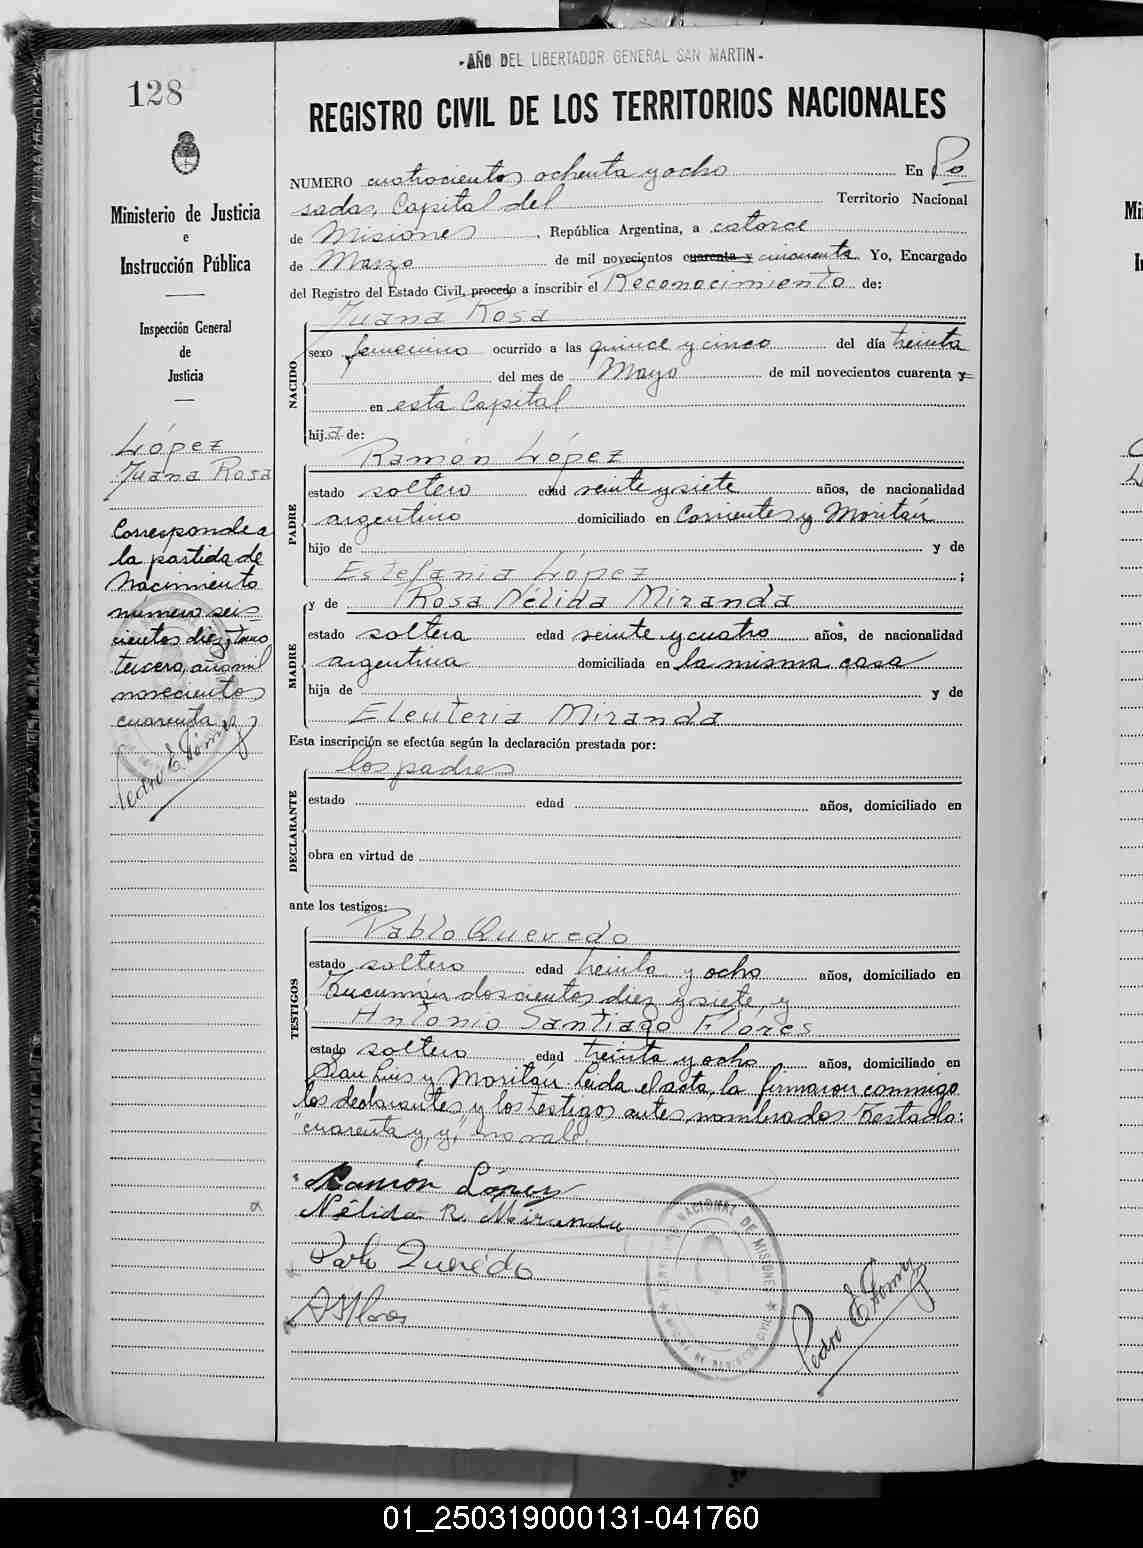 -AÑO DEL LIBERTADOR GENERAL SAN MARTIN-
128
REGISTRO CIVIL DE LOS TERRITORIOS NACIONALES
Ministerio de Justicia
e
Instrucción Pública
Inspección General
de
Justicia
López
Juana Rosa
Corresponde a
la partida de
Nacimiento
numero seis
cientos diez, tomo
tercero, año mil
novecientos
cuarenta
NUMERO cuatrocientos ochenta y ocho En Po
sadas, Capital del Territorio Nacional
de Misiones, República Argentina, a catorce
de Marzo de mil novecientos cuarenta y cincuenta Yo, Encargado
del Registro del Estado Civil, procedo a inscribir el Reconocimiento de:
Juana Rosa
NACIDO
sexo femenino ocurrido a las quince y cinco del día treinta
del mes de Mayo de mil novecientos cuarenta y
en esta Capital
hija de:
Ramón López
PADRE
estado soltero edad veinte y siete años, de nacionalidad
argentino domiciliado en Corrientes y Moritán
hijo de y de
Estefania López ;
y de Rosa Nélida Miranda
MADRE
estado soltera edad veinte y cuatro años, de nacionalidad
argentina domiciliada en la misma casa
hija de y de
Eleuteria Miranda
Esta inscripción se efectúa según la declaración prestada por:
los padres
DECLARANTE
estado edad años, domiciliado en
obra en virtud de
ante los testigos:
Pablo Quevedo
TESTIGOS
estado soltero edad treinta y ocho años, domiciliado en
Tucumán doscientos diez y siete, y
Antonio Santiago Flóres
estado soltero edad treinta y ocho años, domiciliado en
San Luis y Moritán. Leida el acta, la firmaron conmigo
los declarantes y los testigos antes nombrados. Testado:
"cuarenta y, y," no vale.
Ramón López
Nélida R. Miranda
Pablo Quevedo
ASFlores
01_250319000131-041760